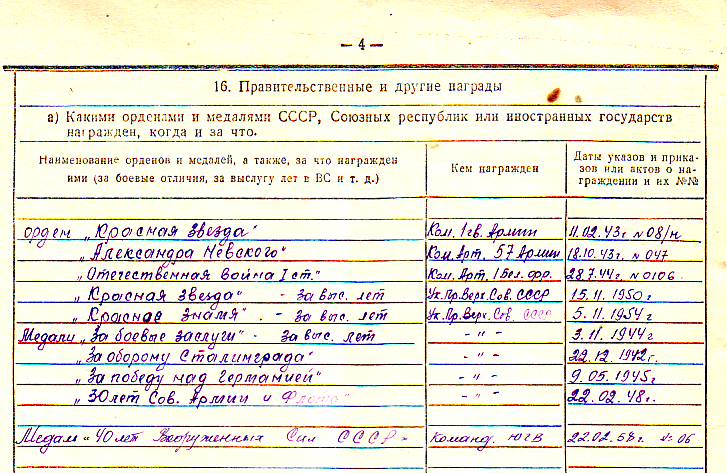 — 4 —
16. Правительственные и другие награды
а) Какими орденами и медалями СССР, Союзных республик или иностранных государств
награжден, когда и за что.
Наименование орденов и медалей, а также, за что награжден
ими (за боевые отличия, за выслугу лет в ВС и т. д.)
Кем награжден
Даты указов и прика-
зов или актов о
награждении и их №№
орден „Красная Звезда" Ком. 1 гв. Армии 11.02.43г. №08/н
„Александра Невского" Ком. Арт. 57 Армии 18.10.43г. №047
„Отечественная Война I ст." Ком. Арт. 1 Бел. фр. 28.7.44г. №0106
„Красная Звезда" - За выс. лет Ук. Пр. Верх. Сов. СССР 15.11.1950г
„Красное Знамя". - за выс. лет Ук. Пр. Верх. Сов. СССР 5.11.1954г
Медали „За боевые заслуги" - За выс. лет - „ - 3.11.1944г
„За оборону Сталинграда" - „ - 22.12.1942г.
„За победу над Германией" - „ - 9.05.1945г
„30 лет Сов. Армии и Флота" - „ - 22.02.48г.
Медаль „40 лет Вооруженных Сил СССР - Команд. ЮГВ 22.02.58г №06